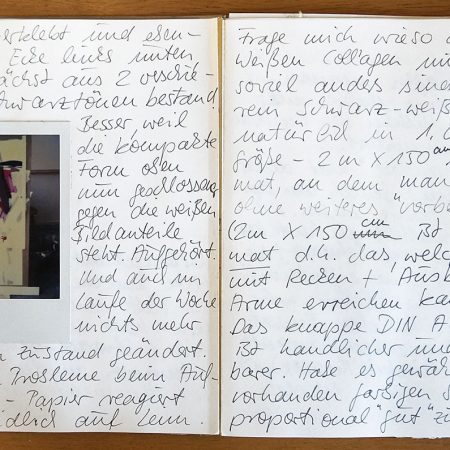 verklebt und esen-
Ecke links unten
ächst aus 2 verschie-
chwarztönen bestand.
Besser, weil
die kompakte
Form oben
nun geschlossen
gegen die weißen
Bildanteile
steht. Aufgehört.
Und auch im
Laufe der Woche
nichts mehr
Zustand geändert.
Probleme beim Auf-
- Papier reagiert
dlich auf Leim.
Frage mich wieso
weißen Collagen mi
soviel anders sin
rein schwarz-weiß
natürlich in
größe - 2 m X 150 cm
mat, an dem man
ohne weiteres "vorb
(2 m X 150 cm ist
mat d.h. das, welc
mit Recken + Aus
Arme erreichen ka
Das knappe DIN A
ist handlicher un
barer. Habe es gewäh
vorhanden farbigen
proportional "gut" zu